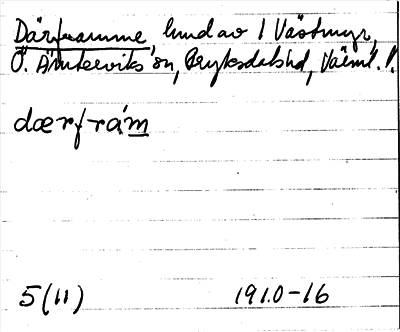 Därframme lund av l Västmyr,
Ö. Ämterviks sn, Fryksdals hd, Värml. l.
dærfrám
5(11) 1910-16